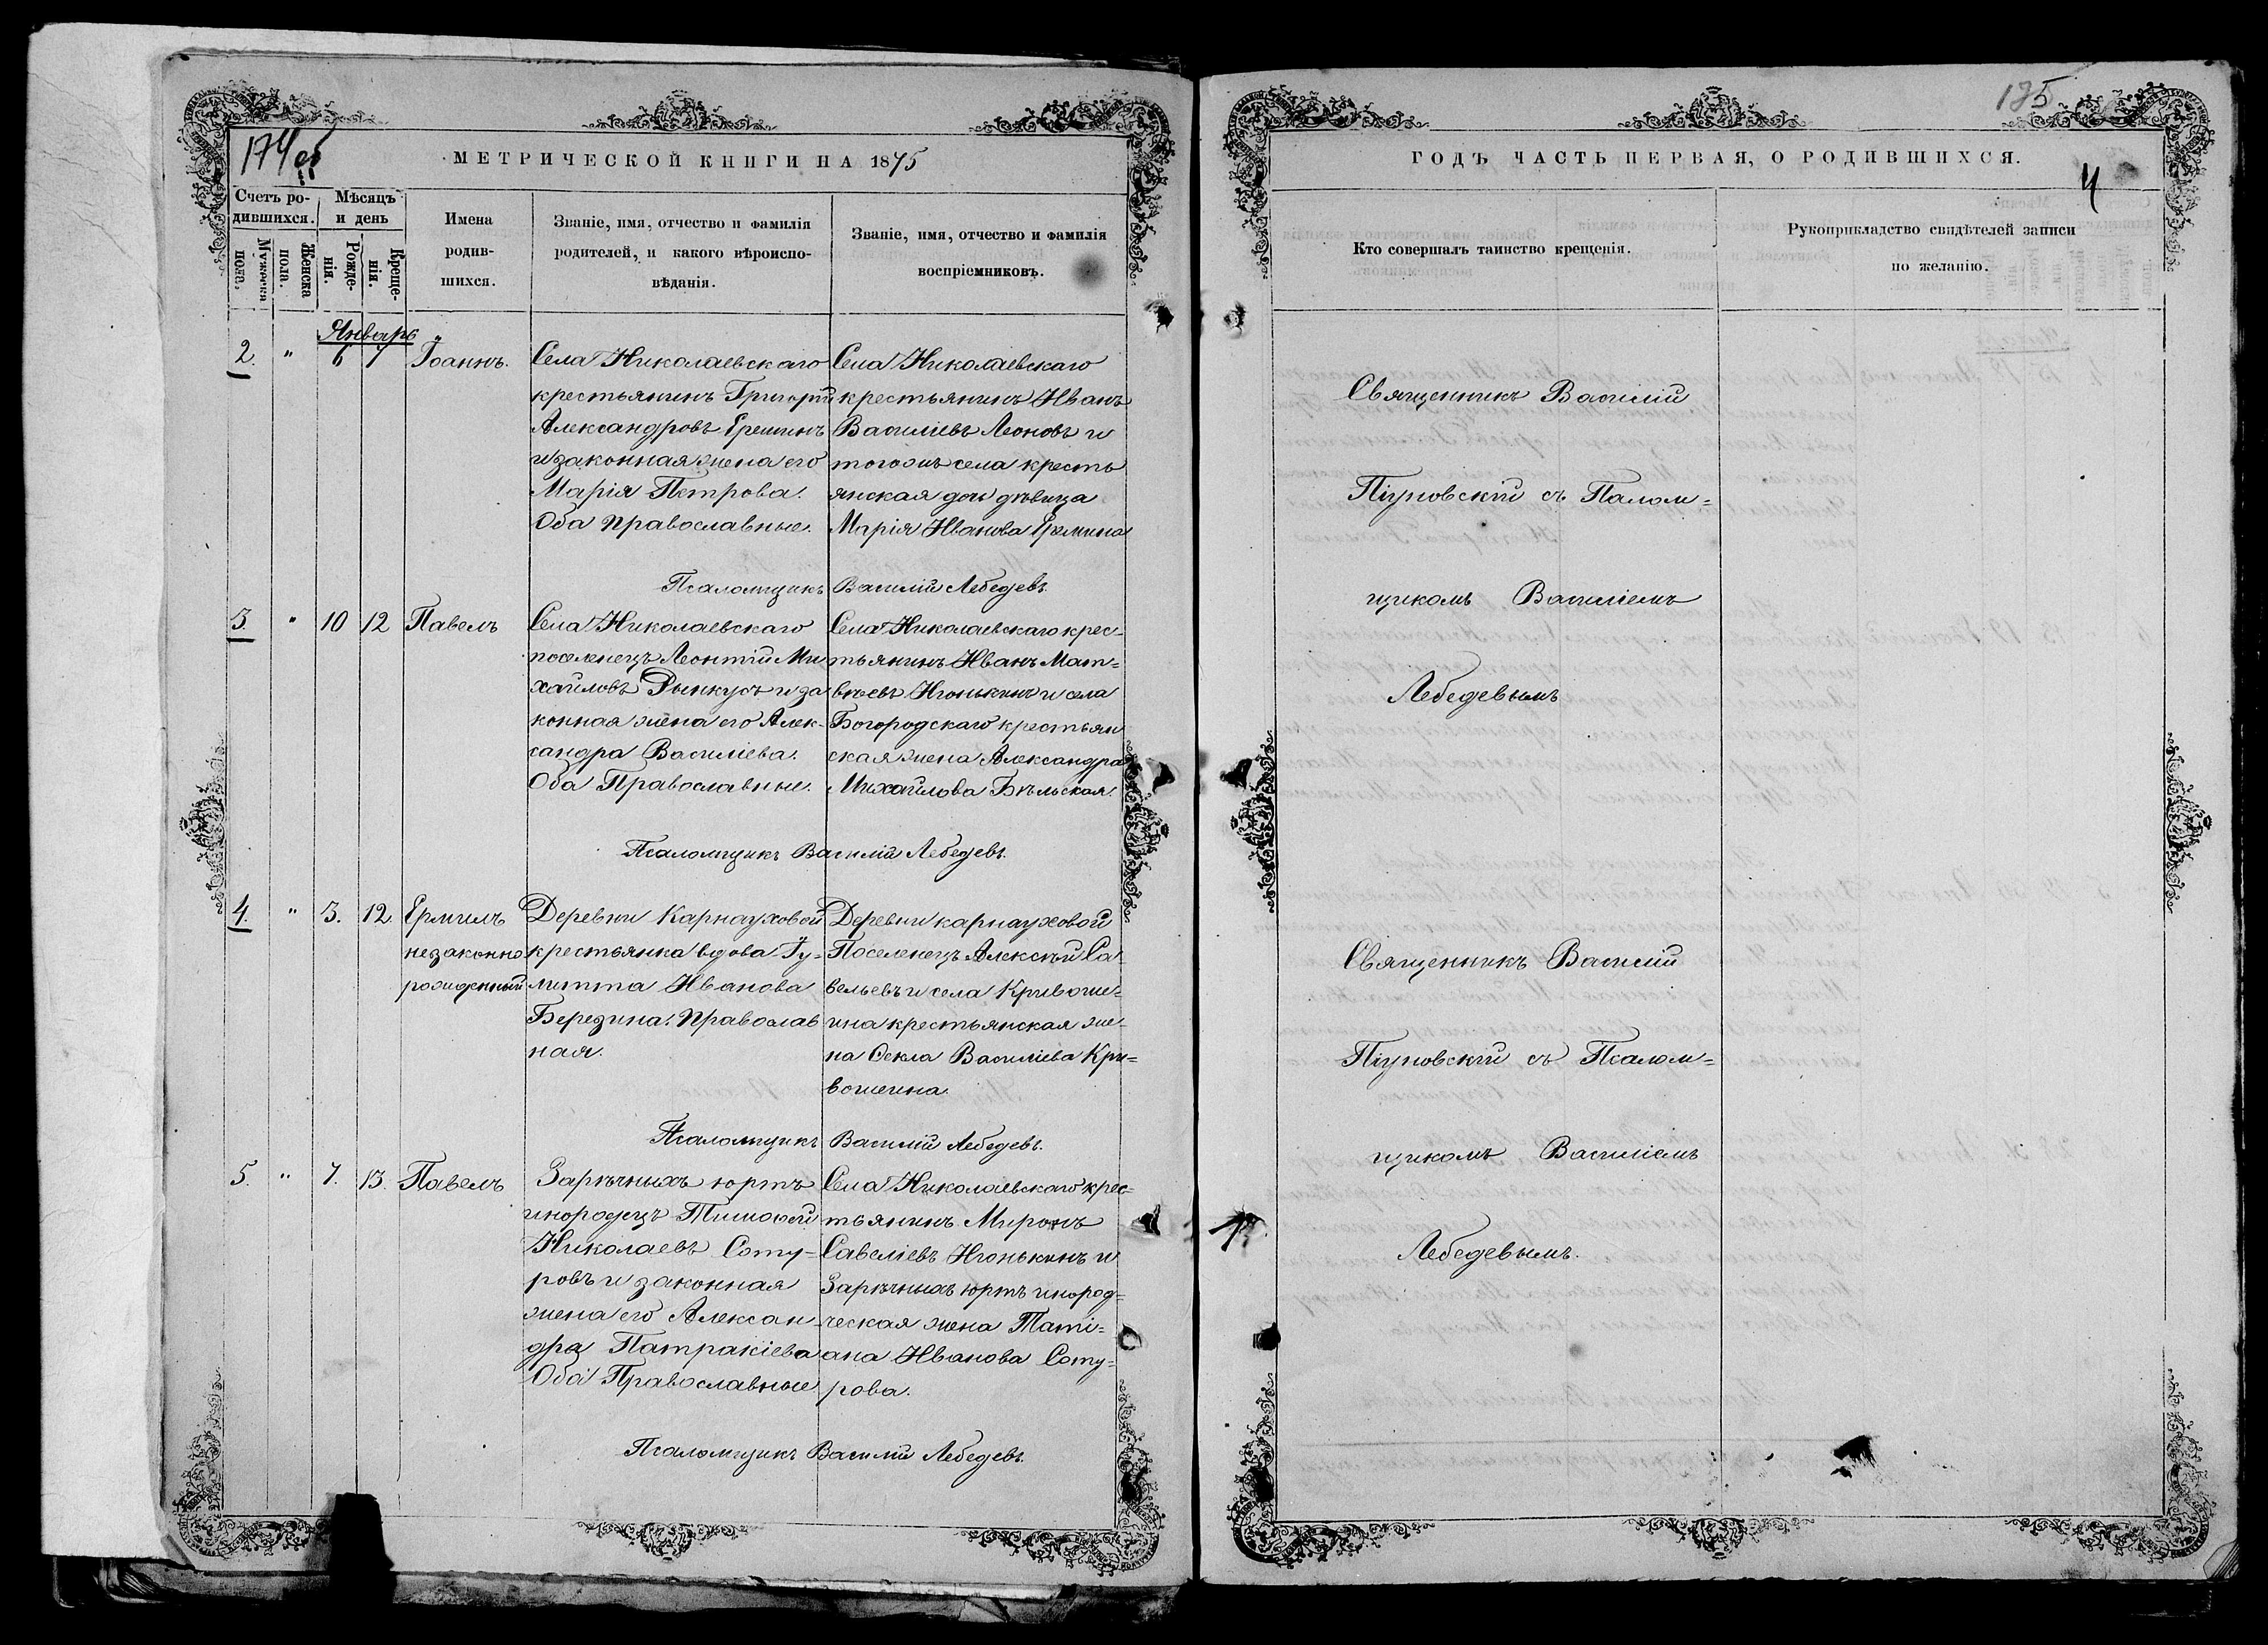 174 об
МЕТРИЧЕСКОЙ КНИГИ НА 1875
Счетъ ро-
дившихся.
Мѣсяцъ
и день
Мужеска
пола.
Женска
пола.
Рожде-
нія.
Креще-
нія.
Имена
родив-
шихся.
Званіе, имя, отчество и фамилія
родителей, и какого вѣроиспо-
вѣданія.
Званіе, имя, отчество и фамилія
воспріемниковъ.
Январь
2. " 6 7 Іоаннъ.
Села Николаевскаго
крестьянинъ Григорій
Александровъ Ереминъ
и законная жена его
Марія Петрова.
Оба православные.
Села Николаевскаго
крестьянинъ Иванъ
Василіевъ Леоновъ и
тогожъ села кресть
янская дочь дѣвица
Марія Иванова Еремина
Псаломщикъ Василій Лебедевъ.
3. " 10 12 Павелъ
Села Николаевскаго
поселенецъ Леонтій Ми
хайловъ Рынкусъ и за
конная жена его Алек-
сандра Василіева.
Оба Православные.
Села Николаевскаго крес-
тьянинъ Иванъ Мат-
вѣевъ Игонькинъ и села
Богородскаго крестьян
ская жена Александра
Михайлова Бѣльская.
Псаломщикъ Василій Лебедевъ.
4. " 3. 12 Ермилъ
незаконно
рожденный
Деревни Карнауховой
крестьянка вдова Іу-
литта Иванова
Березина. Православ
ная.
Деревни карнауховой
Поселенецъ Алексѣй Са
вельевъ и села Кривоше-
ина крестьянская же-
на Ѳекла Василіева Кри-
вошеина.
Псаломщикъ Василій Лебедевъ.
5. " 7. 13. Павелъ
Зарѣчныхъ юртъ
инородецъ Тимофей
Николаевъ Соту-
ровъ и законная
жена его Алексан-
дра Патракіева
Оба Православные
Села Николаевскаго крес-
тьянинъ Миронъ
Савеліевъ Игонькинъ и
Зарѣчныхъ юртъ инород-
ческая жена Таті-
ана Иванова Соту-
рова.
Псаломщикъ Василій Лебедевъ.
175
ГОДЪ ЧАСТЬ ПЕРВАЯ, О РОДИВШИХСЯ.
4
Кто совершалъ таинство крещенія.
Рукоприкладство свидѣтелей записи
по желанію.
Священникъ Василій
Піуновскій съ Палом-
щикомъ Василіемъ
Лебедевымъ
Священникъ Василій
Піуновскій съ Псалом-
щикомъ Василіемъ
Лебедевымъ.